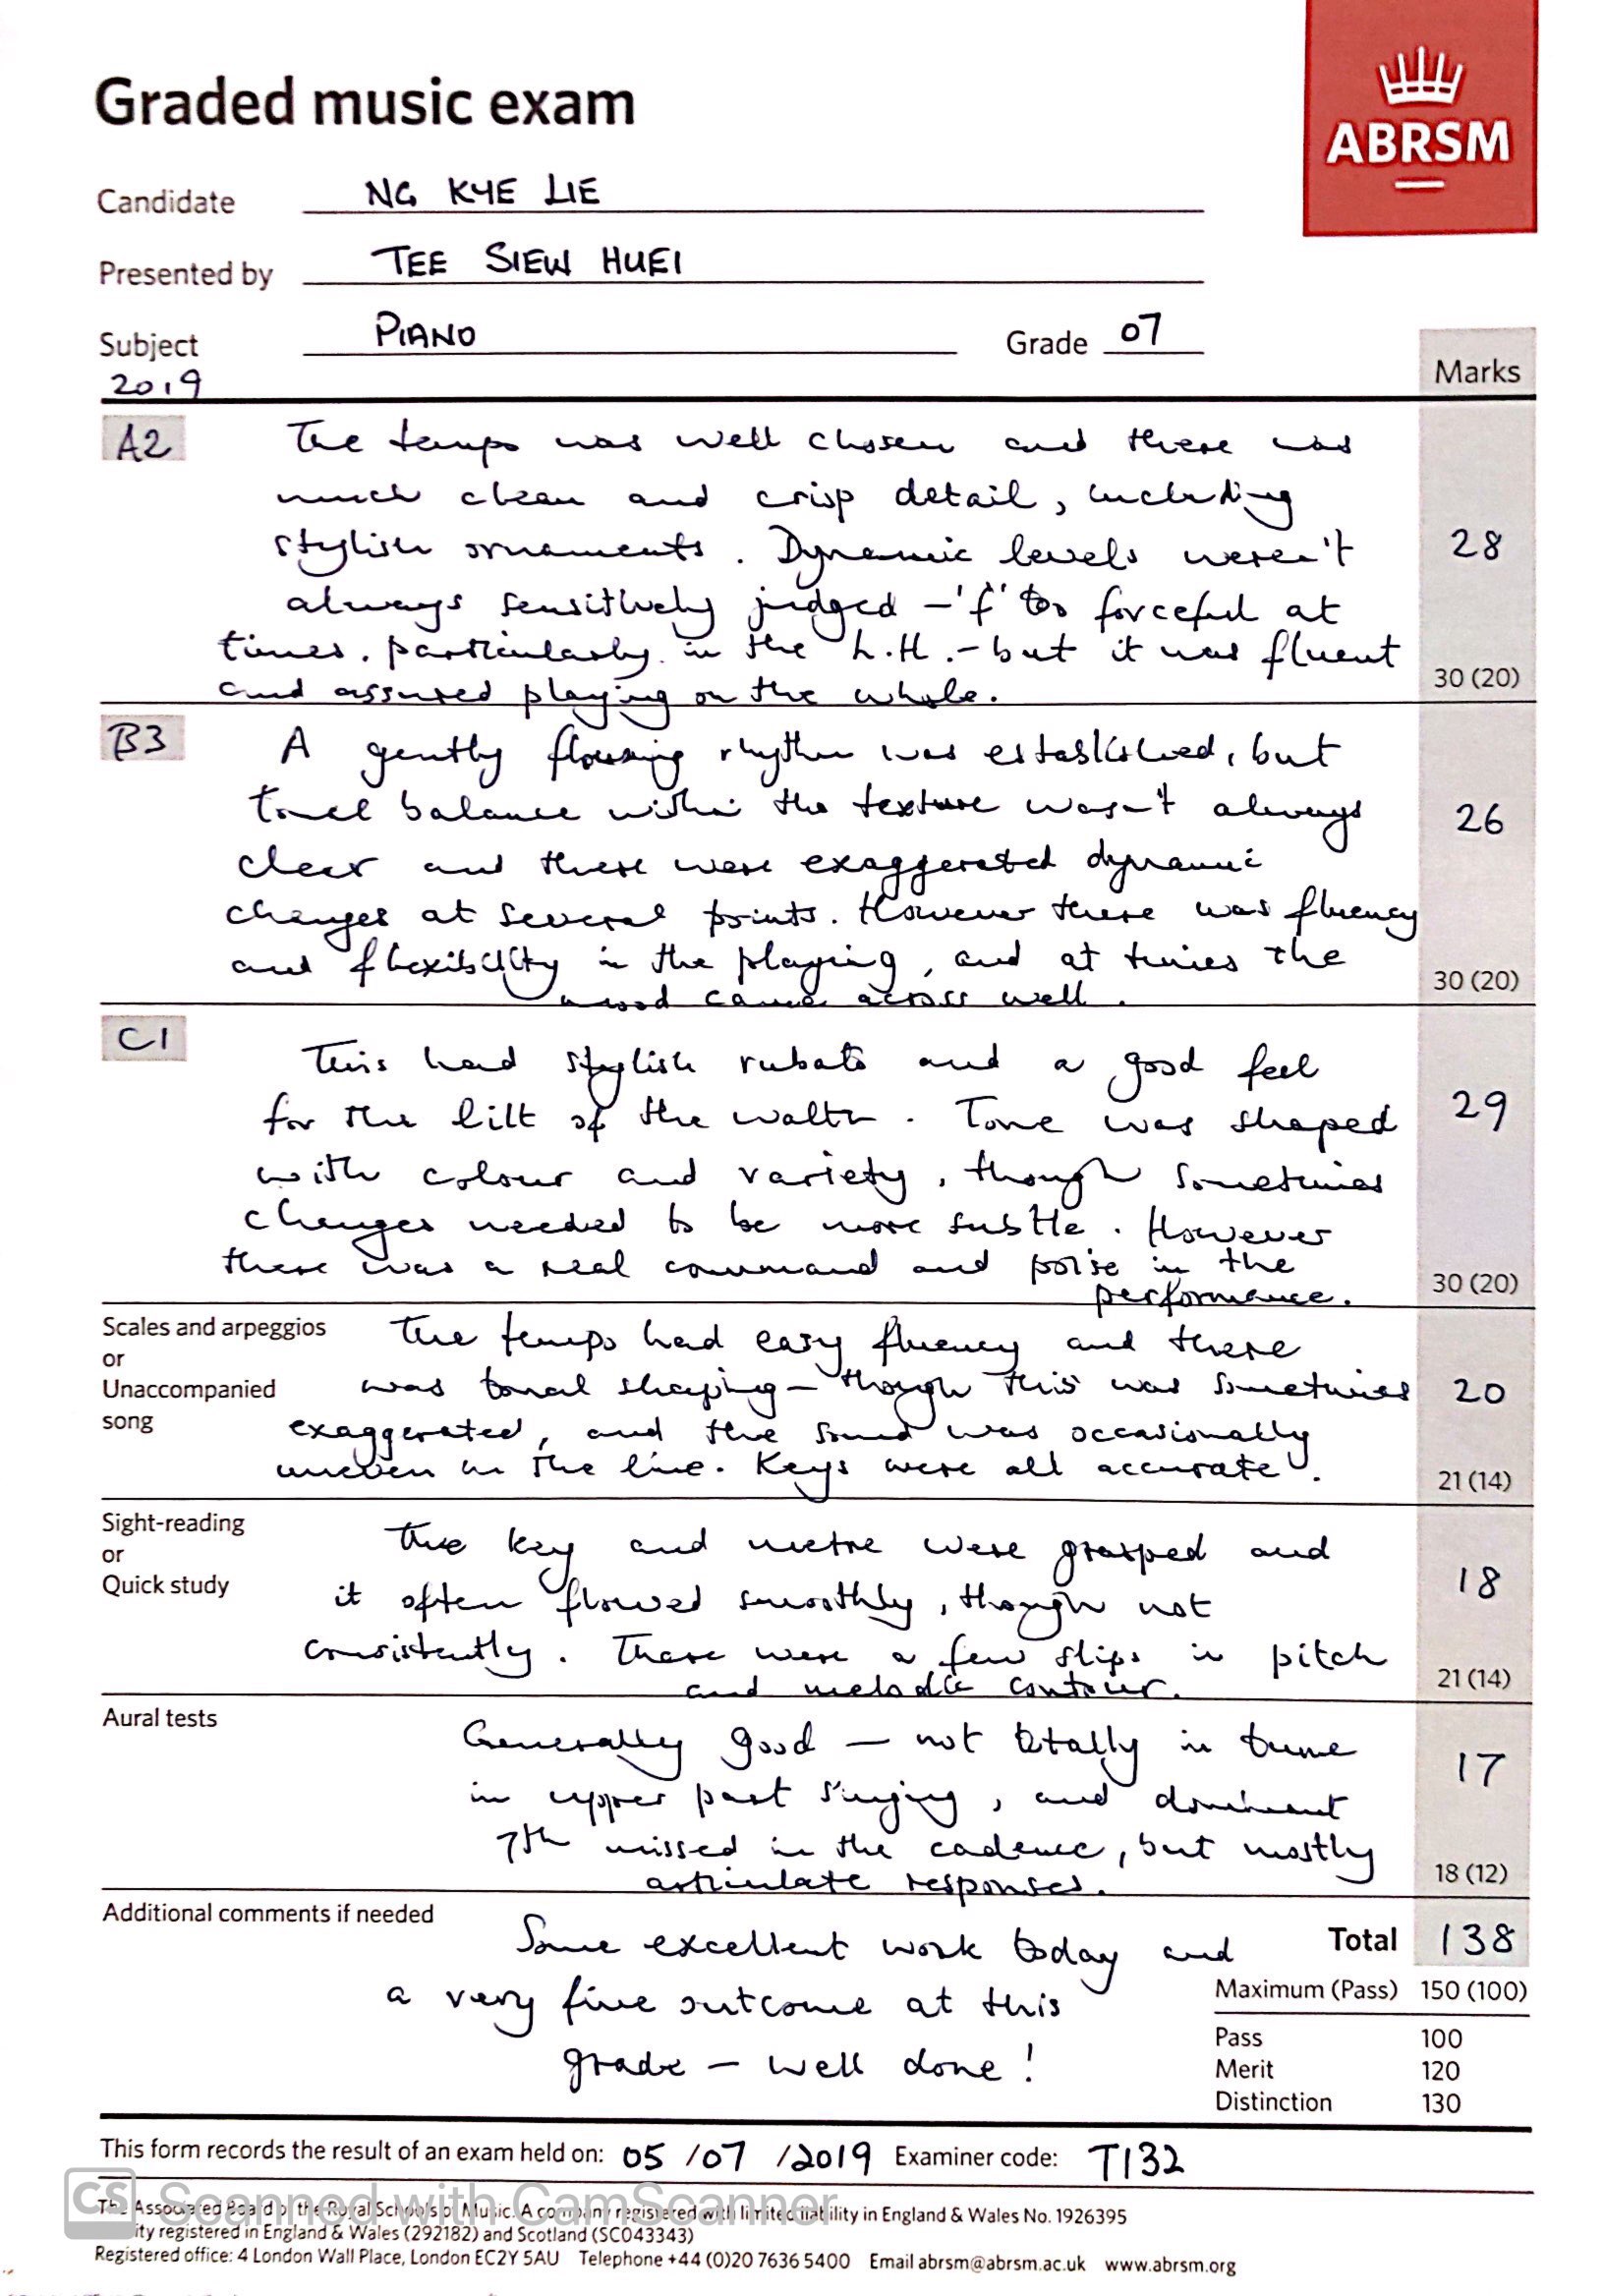 Graded music exam
ABRSM
Candidate NG KYE LIE
Presented by TEE SIEW HUEI
Subject PIANO Grade 07
2019
Marks
A2 The tempo was well chosen and there was
much clean and crisp detail, including
stylish ornaments. Dynamic levels weren't
28
always sensitively judged - 'f' too forceful at
times, particularly in the L.H. - but it was fluent
and assured playing on the whole.
30 (20)
B3 A gently flowing rhythm was established, but
tonal balance within the texture wasn't always
26
clear and there were exaggerated dynamic
changes at several points. However there was fluency
and flexibility in the playing, and at times the
mood came across well.
30 (20)
C1 This had stylish rubato and a good feel
for the lilt of the waltz. Tone was shaped
29
with colour and variety, though sometimes
changes needed to be more subtle. However
there was a real command and poise in the
performance.
30 (20)
Scales and arpeggios
or
Unaccompanied
song
The tempo had easy fluency and there
was tonal shaping - though this was sometimes
20
exaggerated, and the sound was occasionally
uneven in the line. Keys were all accurate.
21 (14)
Sight-reading
or
Quick study
The key and metre were grasped and
it often flowed smoothly, though not
18
consistently. There were a few slips in pitch
and melodic contour.
21 (14)
Aural tests
Generally good - not totally in tune
17
in upper part singing, and dominant
7th missed in the cadence, but mostly
articulate responses.
18 (12)
Additional comments if needed
Some excellent work today and
a very fine outcome at this
grade - well done!
Total 138
Maximum (Pass) 150 (100)
Pass 100
Merit 120
Distinction 130
This form records the result of an exam held on: 05 /07 /2019 Examiner code: T132
CS Scanned with CamScanner
The Associated Board of the Royal Schools of Music. A company registered with limited liability in England & Wales No. 1926395
ity registered in England & Wales (292182) and Scotland (SC043343)
Registered office: 4 London Wall Place, London EC2Y 5AU Telephone +44 (0)20 7636 5400 Email abrsm@abrsm.ac.uk www.abrsm.org